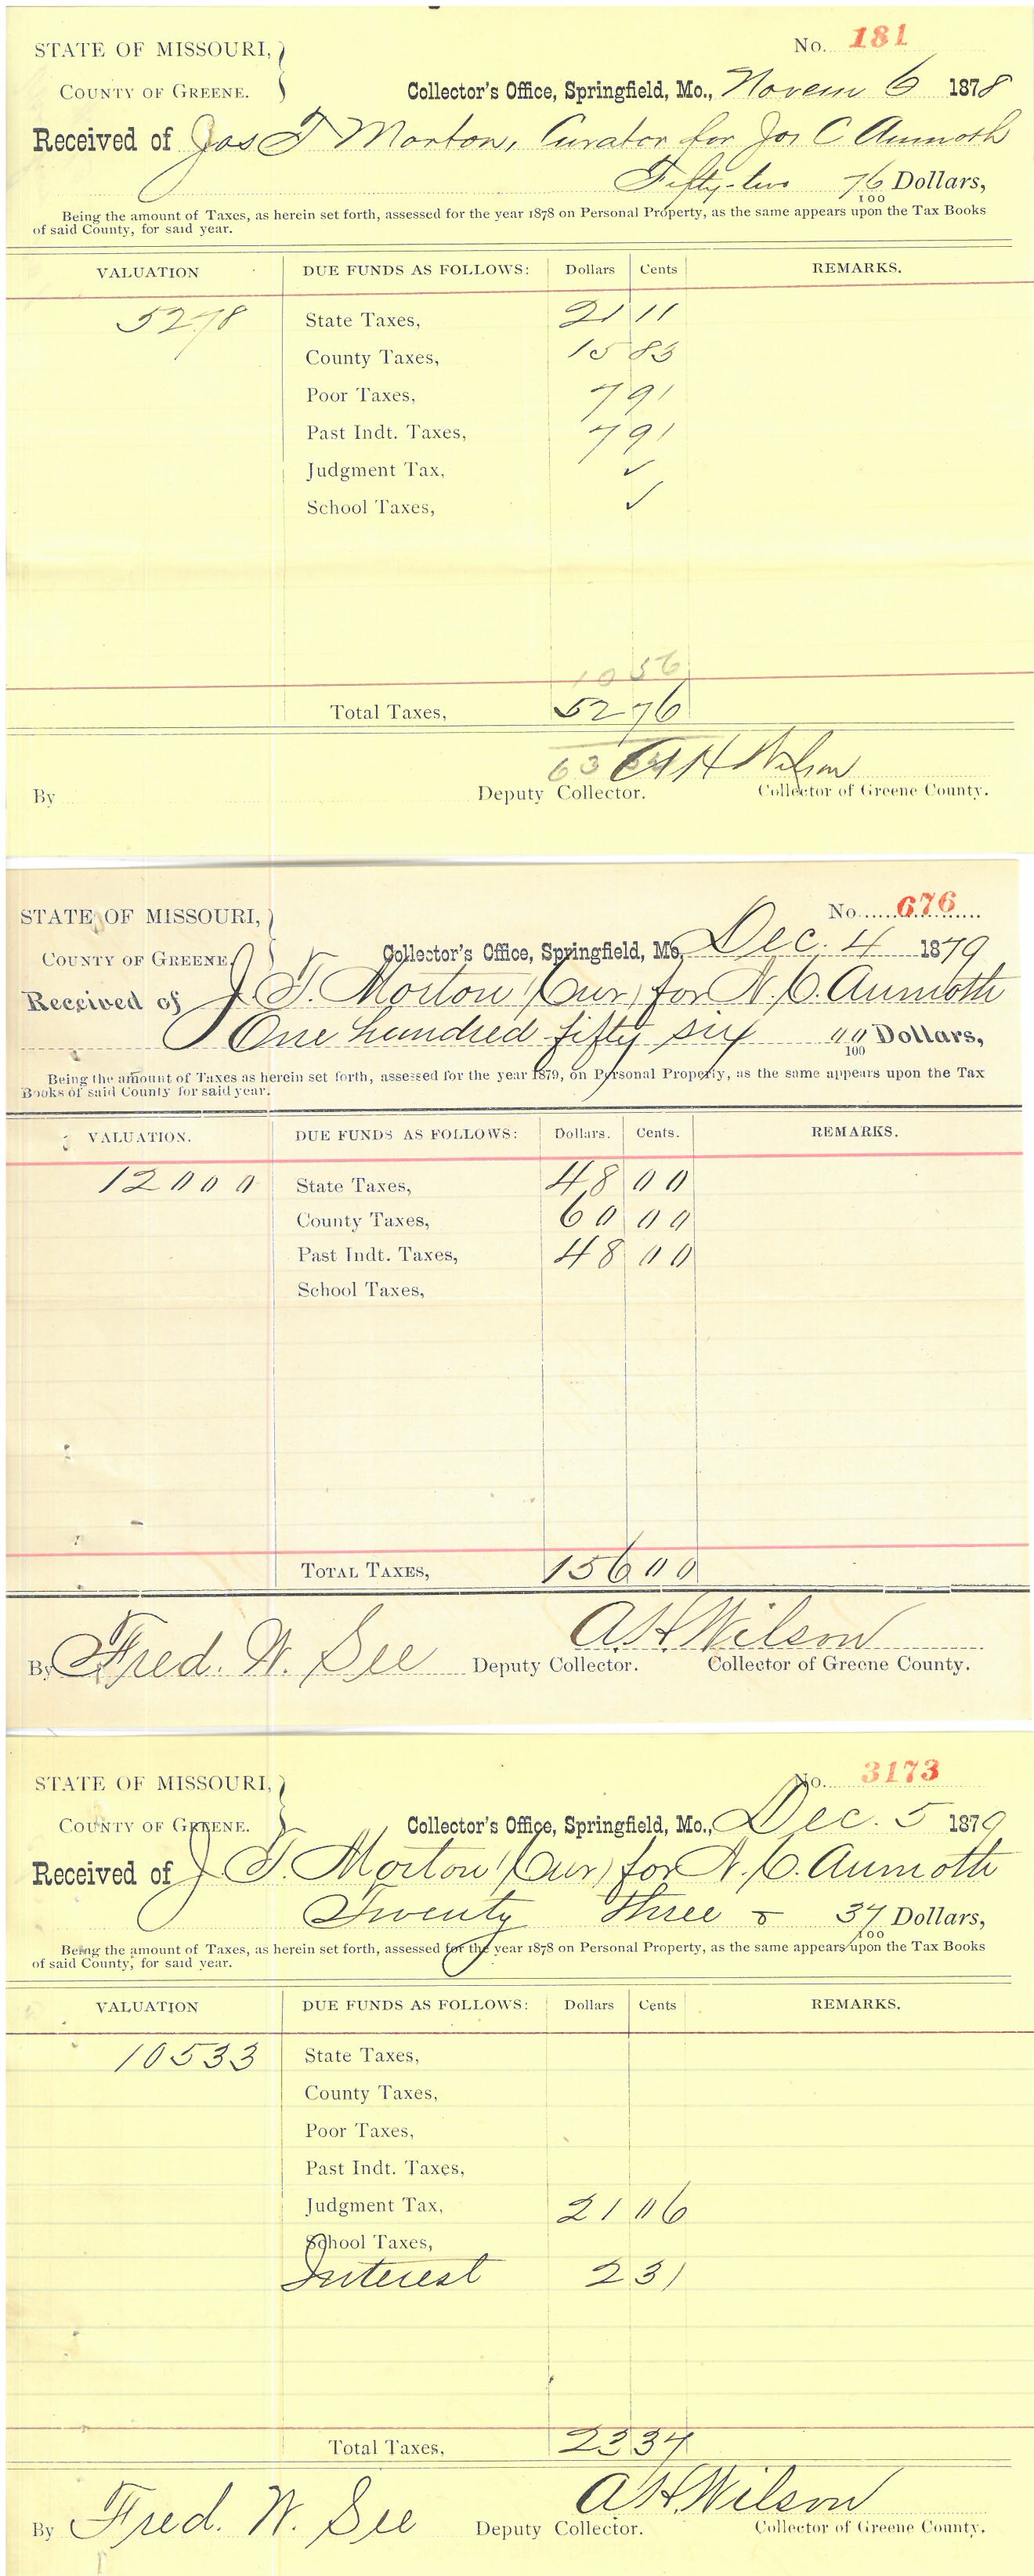 No. 181
STATE OF MISSOURI,
COUNTY OF GREENE.
Collector's Office, Springfield, Mo., Novem 6 1878
Received of Jas T Morton, Curator for Jos C Aumoth
Fifty-two 76/100 Dollars,
Being the amount of Taxes, as herein set forth, assessed for the year 1878 on Personal Property, as the same appears upon the Tax Books
of said County, for said year.
VALUATION DUE FUNDS AS FOLLOWS: Dollars Cents REMARKS.
5278 State Taxes, 21 11
County Taxes, 15 83
Poor Taxes, 7 91
Past Indt. Taxes, 7 91
Judgment Tax, ✓
School Taxes, ✓
10 56
Total Taxes, 52 76
63 A H Wilson
By Deputy Collector. Collector of Greene County.
No. 676
STATE OF MISSOURI,
COUNTY OF GREENE,
Collector's Office, Springfield, Mo, Dec. 4 1879
Received of J. T. Morton (Cur) for N. C. Aumoth
One hundred fifty six 00/100 Dollars,
Being the amount of Taxes as herein set forth, assessed for the year 1879, on Personal Property, as the same appears upon the Tax
Books of said County for said year.
VALUATION. DUE FUNDS AS FOLLOWS: Dollars. Cents. REMARKS.
12000 State Taxes, 48 00
County Taxes, 60 00
Past Indt. Taxes, 48 00
School Taxes,
TOTAL TAXES, 156 00
A. H. Wilson
By Fred. W. See Deputy Collector. Collector of Greene County.
No. 3173
STATE OF MISSOURI,
COUNTY OF GREENE.
Collector's Office, Springfield, Mo., Dec. 5 1879
Received of J T. Morton (Cur) for N. C. Aumoth
Twenty three & 37/100 Dollars,
Being the amount of Taxes, as herein set forth, assessed for the year 1878 on Personal Property, as the same appears upon the Tax Books
of said County, for said year.
VALUATION DUE FUNDS AS FOLLOWS: Dollars Cents REMARKS.
10533 State Taxes,
County Taxes,
Poor Taxes,
Past Indt. Taxes,
Judgment Tax, 21 06
School Taxes,
Interest 2 31
Total Taxes, 23 37
A. H. Wilson
By Fred. W. See Deputy Collector. Collector of Greene County.